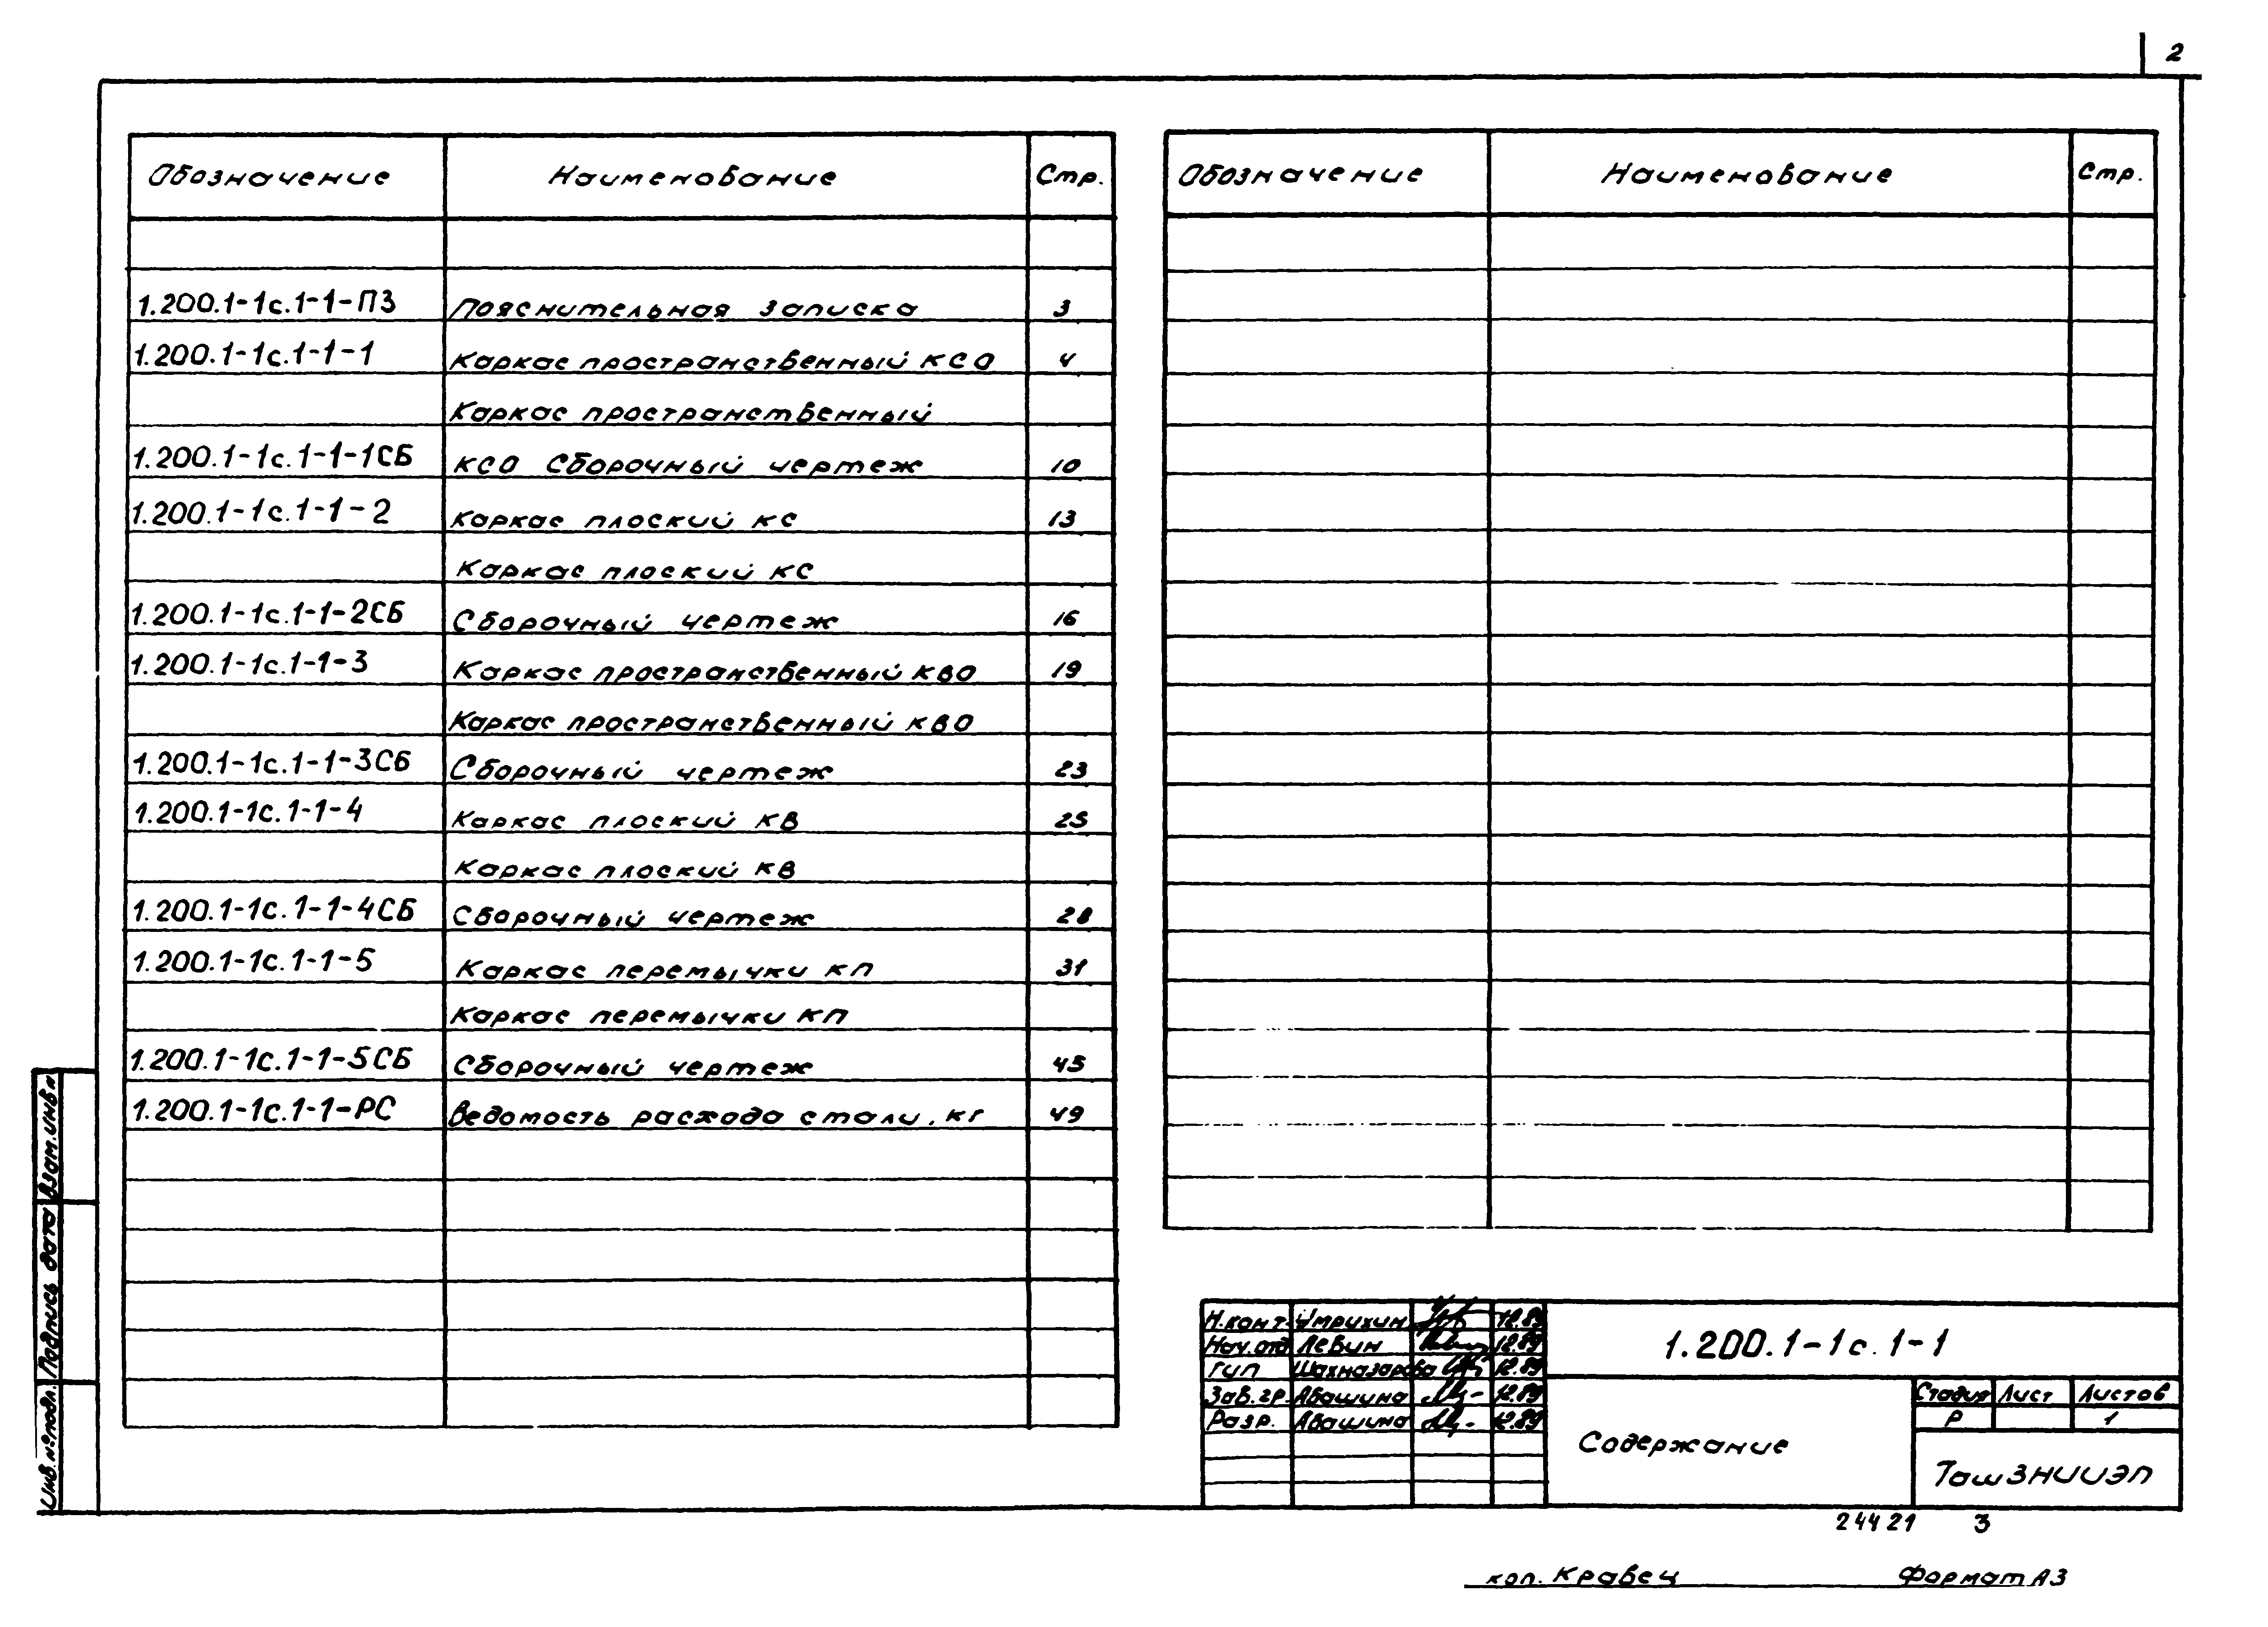 2
Обозначение Наименование Стр.
1.200.1-1с.1-1-ПЗ Пояснительная записка 3
1.200.1-1с.1-1-1 Каркас пространственный КСО 4
Каркас пространственный
1.200.1-1с.1-1-1СБ КСО Сборочный чертеж 10
1.200.1-1с.1-1-2 Каркас плоский КС 13
Каркас плоский КС
1.200.1-1с.1-1-2СБ Сборочный чертеж 16
1.200.1-1с.1-1-3 Каркас пространственный КВО 19
Каркас пространственный КВО
1.200.1-1с.1-1-3СБ Сборочный чертеж 23
1.200.1-1с.1-1-4 Каркас плоский КВ 25
Каркас плоский КВ
1.200.1-1с.1-1-4СБ Сборочный чертеж 28
1.200.1-1с.1-1-5 Каркас перемычки КП 31
Каркас перемычки КП
1.200.1-1с.1-1-5СБ Сборочный чертеж 45
1.200.1-1с.1-1-РС Ведомость расхода стали, кг 49
Обозначение Наименование Стр.
Взам.инв.н
Подпись дата
Инв.№подл.
Н.конт. Умрихин 12.89
Нач.отд Левин 12.89
ГИП Шахназарова 12.89
Зав.гр. Авашина 12.89
Разр. Авашина 12.89
1.200.1-1с.1-1
Содержание
Стадия Лист Листов
Р 1
ТашЗНИИЭП
24421 3
коп. Кравец Формат А3